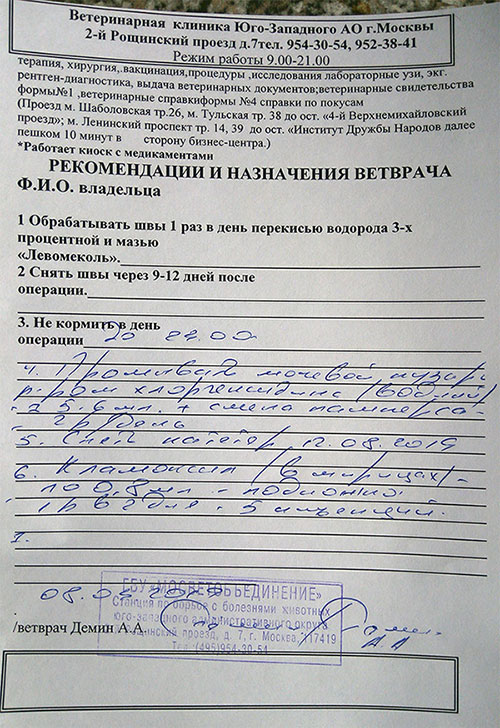 Ветеринарная клиника Юго-Западного АО г.Москвы
2-й Рощинский проезд д.7тел. 954-30-54, 952-38-41
Режим работы 9.00-21.00
терапия, хирургия,.вакцинация,процедуры ,исследования лабораторные узи, экг.
рентген-диагностика, выдача ветеринарных документов;ветеринарные свидетельства
формы№1 ,ветеринарные справкиформы №4 справки по покусам
(Проезд м. Шаболовская тр.26, м. Тульская тр. 38 до ост. «4-й Верхнемихайловский
проезд»; м. Ленинский проспект тр. 14, 39 до ост. «Институт Дружбы Народов далее
пешком 10 минут в сторону бизнес-центра.)
*Работает киоск с медикаментами
РЕКОМЕНДАЦИИ И НАЗНАЧЕНИЯ ВЕТВРАЧА
Ф.И.О. владельца
1 Обрабатывать швы 1 раз в день перекисью водорода 3-х
процентной и мазью
«Левомеколь».
2 Снять швы через 9-12 дней после
операции.
3. Не кормить в день
операции до
4. Промывать мочевой пузырь
р-ром хлоргексидина (водный)
5-6 мл. + смена памперса
2 р/день
5. Снять катетер 12.08.2019
6. Кламоксил (в шприцах)
по 0,8 мл. - подкожно
1 р в 2 дня - 5 инъекций.
ГБУ «МОСВЕТОБЪЕДИНЕНИЕ»
Станция по борьбе с болезнями животных
юго-западного административного округа
Рощинский проезд, д. 7, г. Москва, 117419
Тел.:(495)954-30-54
/ветврач Демин А.А